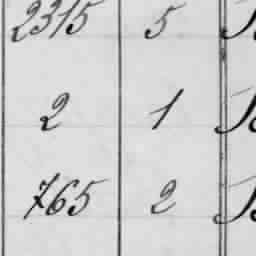 2315 5
2 1
765 2